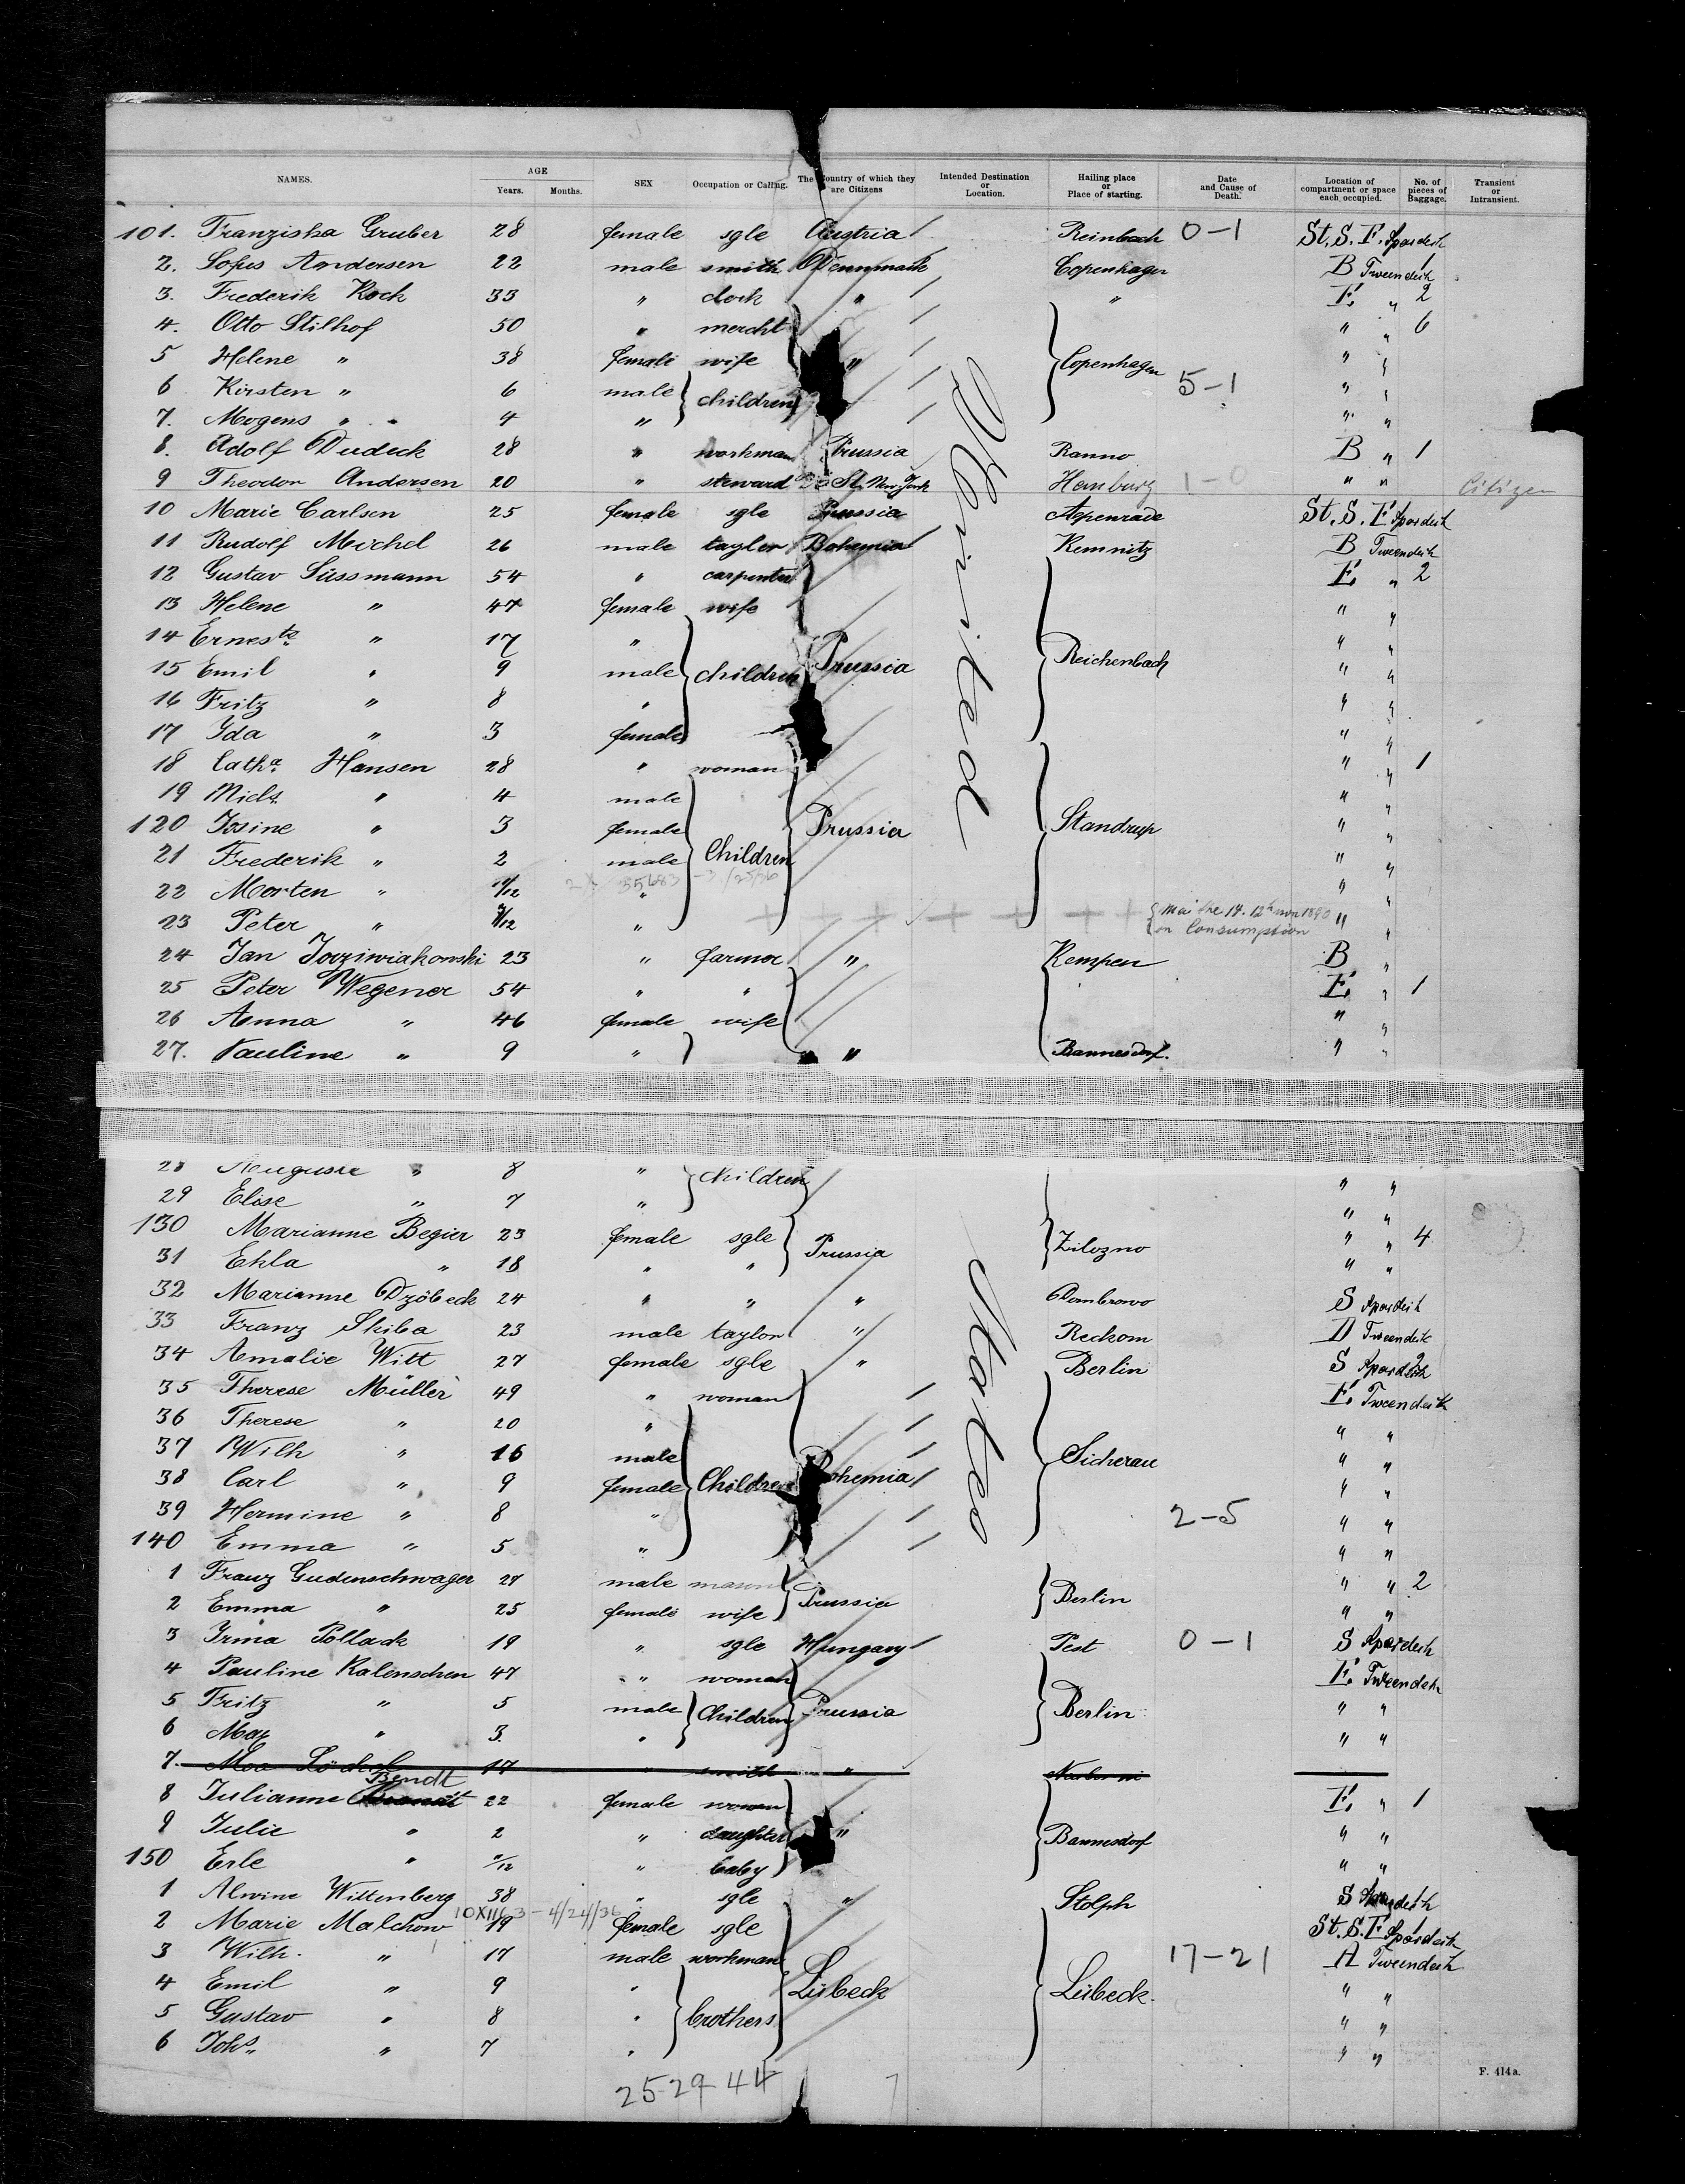 NAMES. AGE Years. Months. SEX Occupation or Calling. The Country of which they are Citizens Intended Destination or Location. Hailing place or Place of starting. Date and Cause of Death. Location of compartment or space each occupied. No. of pieces of Baggage. Transient or Intransient.
101. Franziska Gruber 28 female sgle Austria Reinbach 0-1 St. S. E. Spardeck
2. Sofus Andersen 22 male smith Dennmark Copenhagen B Tweendeck 1
3. Frederik Kock 33 " clerk " " E. " 2
4. Otto Stilhof 50 " mercht " " 6
5 Helene " 38 female wife " Copenhagen " "
6 Kirsten " 6 male children 5-1 " "
7. Mogens " 4 " " "
8. Adolf Dudeck 28 " workman Prussia Ranno B " 1
9 Theodor Andersen 20 " steward St. New York Hamburg 1-0 " " Citizen
10 Marie Carlsen 25 female sgle Prussia Apenrade St. S. E Spardeck
11 Rudolf Michel 26 male taylor Bohemia Kemnitz B Tweendeck
12 Gustav Süssmann 54 " carpenter E. " 2
13 Helene " 47 female wife " "
14 Erneste " 17 " " "
15 Emil " 9 male children Prussia Reichenbach " "
16 Fritz " 8 " " "
17 Ida " 3 female " "
18 Catha Hansen 28 " woman " " 1
19 Niels " 4 male " "
120 Josine " 3 female Prussia Standrup " "
21 Frederik " 2 male Children " "
22 Morten " 11/12 " 35683 -3/25/36 " "
23 Peter " /12 " + + + + + + + on Consumption " "
24 Jan 23 " farmer " Kempen B "
25 Peter Wegener 54 " " E. " 1
26 Anna " 46 female wife " "
27. Pauline " 9 " " Bannesdorf. " "
United
28 Auguste " 8 " children " "
29 Elise " 7 " " "
130 Marianne Begier 23 female sgle Prussia Zilozno " " 4
31 Ehla " 18 " " " "
32 Marianne Dzöbeck 24 " " " Dombrowo S Spardeck
33 Franz Skiba 23 male taylor " Reckom D Tweendeck
34 Amalie Witt 27 female sgle " Berlin S Spardeck
35 Therese Müller 49 " woman E. Tweendeck
36 Therese " 20 " " "
37 Wilh " 16 male Sicherau " "
38 Carl " 9 female Children Bohemia " "
39 Hermine " 8 " 2-5 " "
140 Emma " 5 " " "
1 Franz Gudenschwager 27 male Prussia Berlin " " 2
2 Emma " 25 female wife " "
3 Irma Pollack 19 " sgle Hungary Pest 0-1 S Spardeck
4 Pauline Kalenschen 47 " woman E. Tweendeck
5 Fritz " 5 male Children Prussia Berlin " "
6 Max " 3. " " "
7. 17 " smith "
8 Julianne Bendt 22 female woman E. " 1
9 Julie " 2 " daughter " Bannesdorf " "
150 Erle " /12 " baby " "
1 Alwine Wittenberg 38 " sgle " Stolph S Spardeck
10X1163-4/24/36
2 Marie Malchow 19 female sgle St. S. E Spardeck
3 Wilh. " 17 male workman 17-21 A Tweendeck
4 Emil " 9 " Lübeck Lübeck. " "
5 Gustav " 8 " brothers " "
6 Johs " 7 " " "
States
25-29-44
F. 414a.